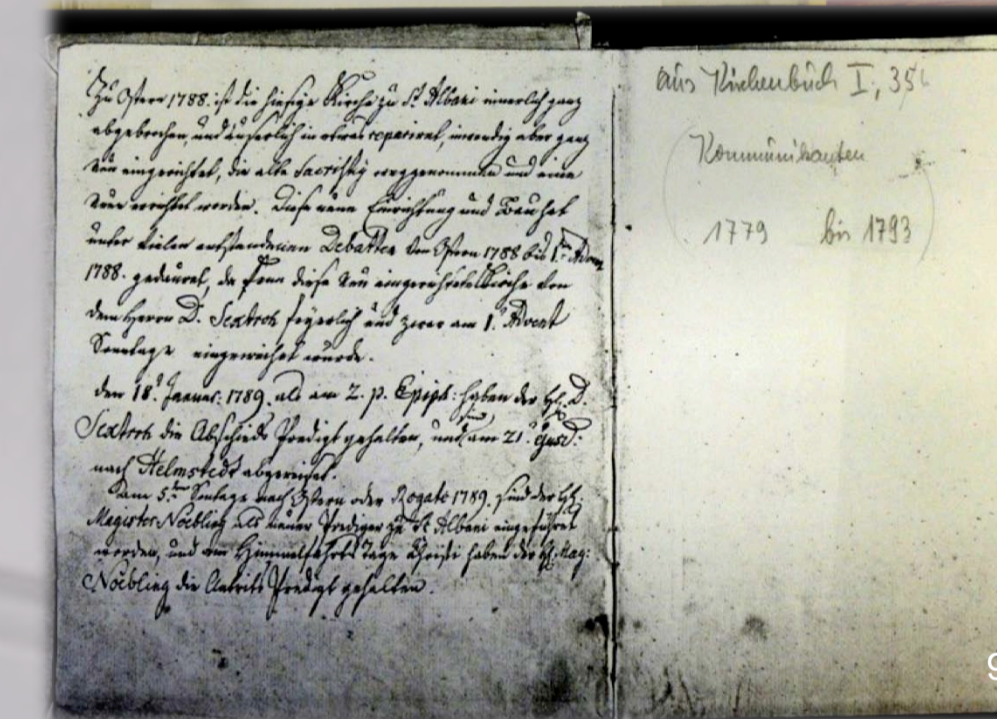 Zu Ostern 1788. ist die hiesige Kirche zu St. Albani innerlich ganz
abgebrochen, und äuserlich in etwas repariret, inwendig aber ganz
neu eingerichtet, die alte Sacristey weggenommen und eine
neue errichtet worden. Diese neue Einrichtung und Bau hat
unter vielen entstandenen Debatten von Ostern 1788 bis 1. Adven
1788. gedauret, da denn diese neu eingerichtete Kirche von
dem Herrn D. Sextroh feyerlich und zwar am 1. Advent
Sonntage eingeweihet wurde.
den 18. Januar: 1789. als am 2. p. Epiph: haben der H. D.
Sextroh die Abschieds Predigt gehalten, und am 21.
nach Helmstedt abgereiset.
am 5. Sontage nach Ostern oder Rogate 1789. sind der H.
Magister Noebling als neuer Prediger zu St. Albani eingeführet
worden, und am Himmelfahrts Tage Christi haben der H. Mag:
Noebling die Antrits Predigt gehalten.
aus Kirchenbuch I, 35
Kommunikanten
1779 bis 1793
9